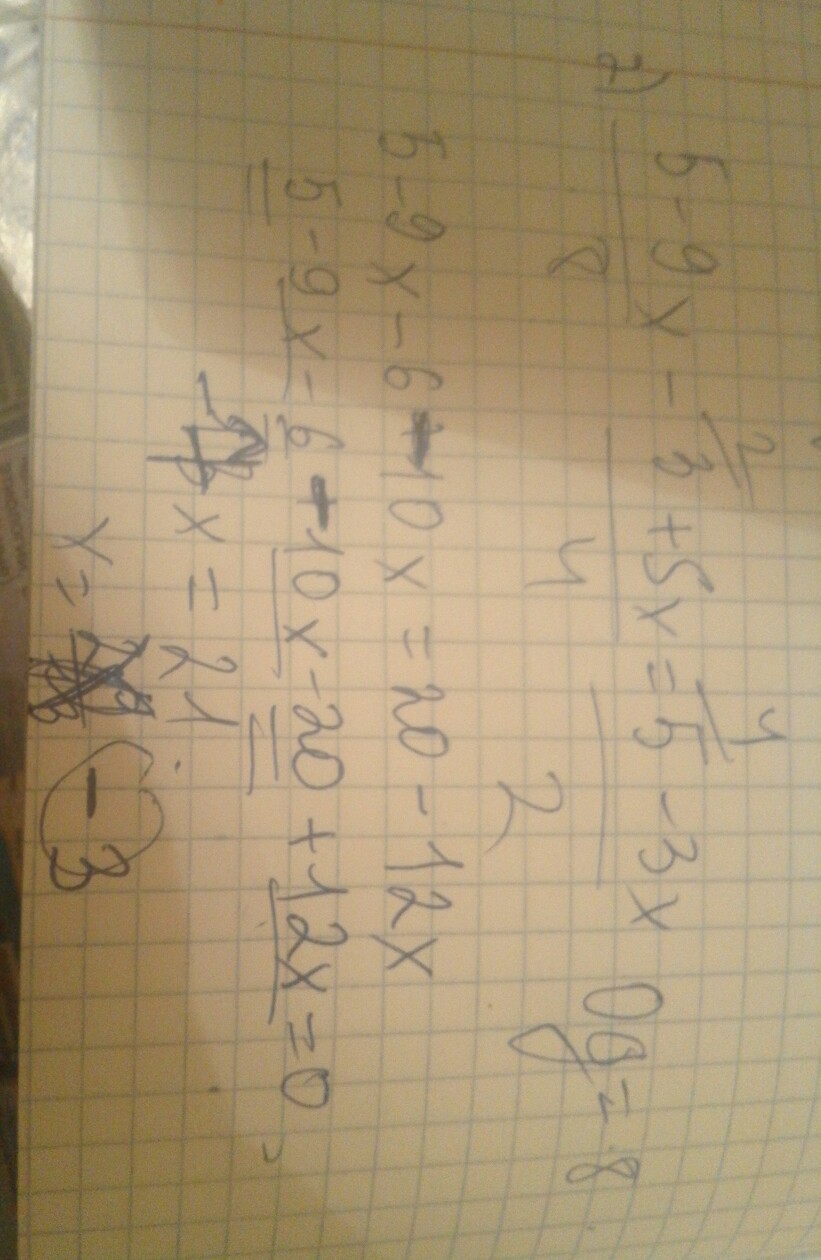 2) 5-9x/8 - 3+5x/4 = 5-3x/2 ОЗ = 8
5-9x-6-10x=20-12x
5-9x-6-10x-20+12x=0
-7x=21
x= -3